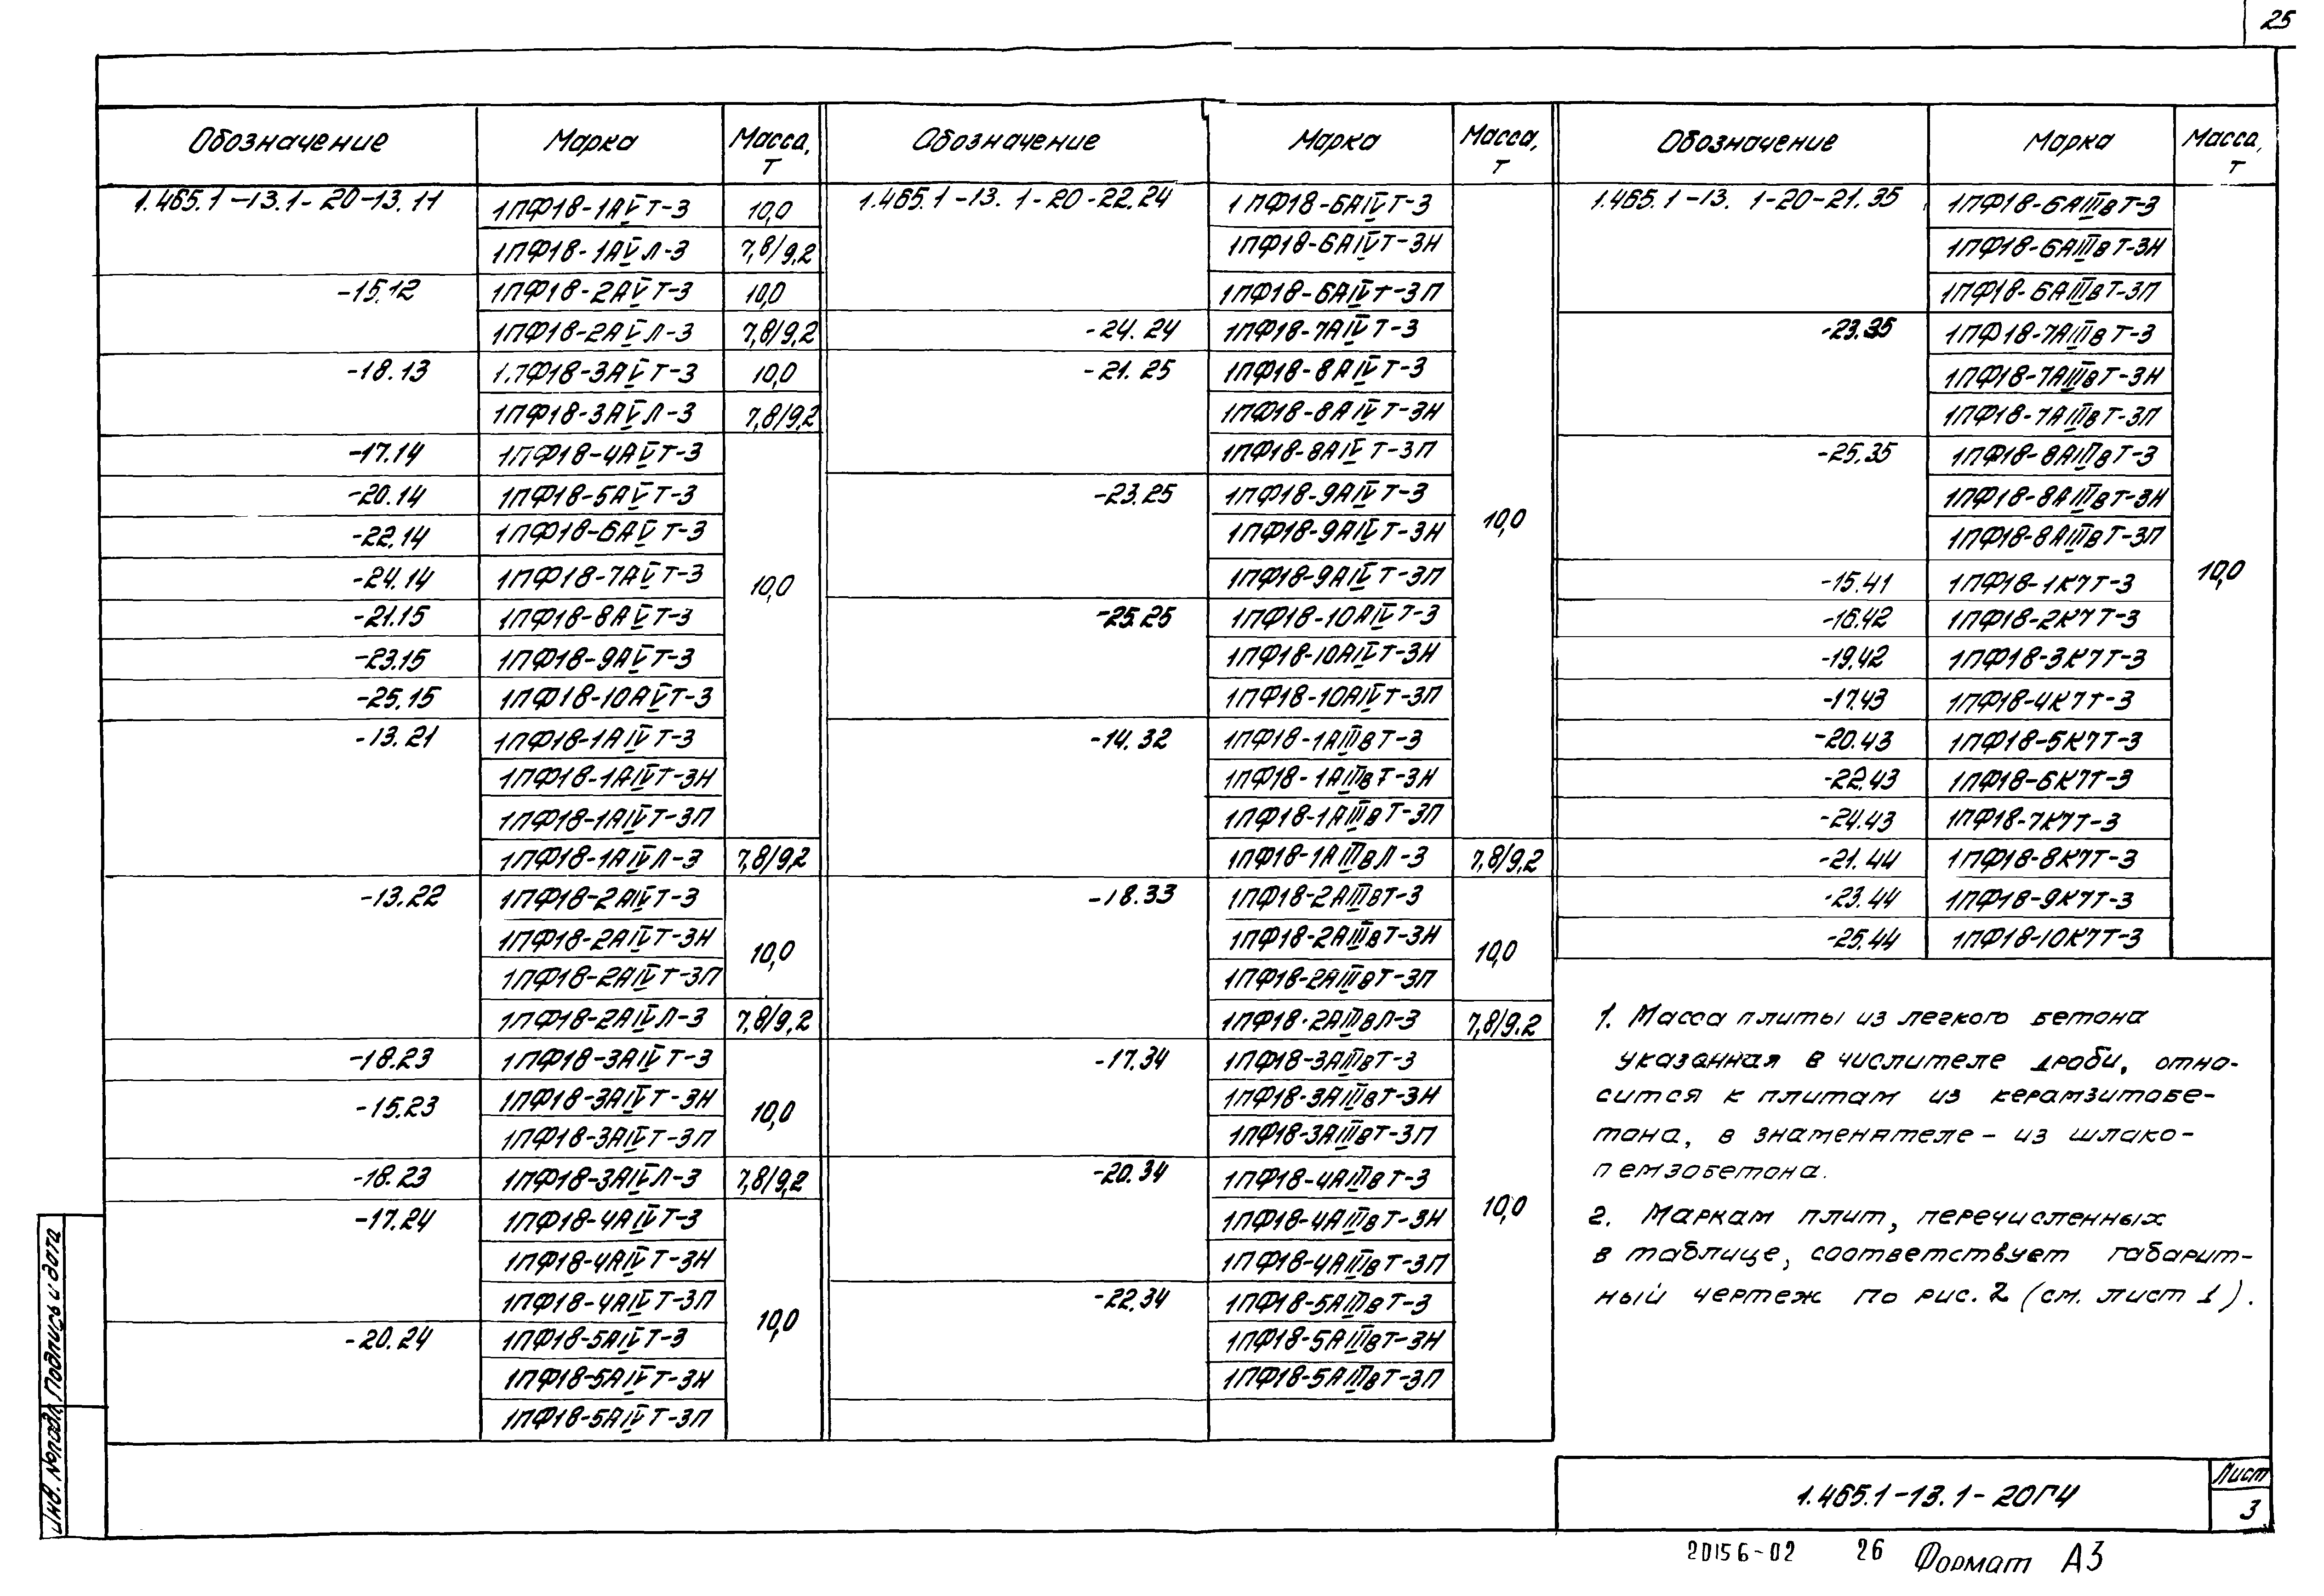 25
Обозначение Марка Масса, т
1.465.1-13.1-20-13.11 1ПФ18-1АV̲Т-3 10,0
1ПФ18-1АV̲Л-3 7,8/9,2
-15.12 1ПФ18-2АV̲Т-3 10,0
1ПФ18-2АV̲Л-3 7,8/9,2
-18.13 1.7Ф18-3АV̲Т-3 10,0
1ПФ18-3АV̲Л-3 7,8/9,2
-17.14 1ПФ18-4АV̲Т-3
-20.14 1ПФ18-5АV̲Т-3
-22.14 1ПФ18-6АV̲Т-3
-24.14 1ПФ18-7АV̲Т-3 10,0
-21.15 1ПФ18-8АV̲Т-3
-23.15 1ПФ18-9АV̲Т-3
-25.15 1ПФ18-10АV̲Т-3
-13.21 1ПФ18-1АIVТ-3
1ПФ18-1АIVТ-3Н
1ПФ18-1АIVТ-3П
1ПФ18-1АIVЛ-3 7,8/9,2
-13.22 1ПФ18-2АIVТ-3
1ПФ18-2АIVТ-3Н 10,0
1ПФ18-2АIVТ-3П
1ПФ18-2АIVЛ-3 7,8/9,2
-18.23 1ПФ18-3АIVТ-3
-15.23 1ПФ18-3АIVТ-3Н 10,0
1ПФ18-3АIVТ-3П
-18.23 1ПФ18-3АIVЛ-3 7,8/9,2
-17.24 1ПФ18-4АIVТ-3
1ПФ18-4АIVТ-3Н
1ПФ18-4АIVТ-3П 10,0
-20.24 1ПФ18-5АIVТ-3
1ПФ18-5АIVТ-3Н
1ПФ18-5АIVТ-3П
Обозначение Марка Масса, т
1.465.1-13.1-20-22.24 1ПФ18-6АIVТ-3
1ПФ18-6АIVТ-3Н
1ПФ18-6АIVТ-3П
-24.24 1ПФ18-7АIVТ-3
-21.25 1ПФ18-8АIVТ-3
1ПФ18-8АIVТ-3Н
1ПФ18-8АIVТ-3П
-23.25 1ПФ18-9АIVТ-3
1ПФ18-9АIVТ-3Н 10,0
1ПФ18-9АIVТ-3П
-25.25 1ПФ18-10АIVТ-3
1ПФ18-10АIVТ-3Н
1ПФ18-10АIVТ-3П
-14.32 1ПФ18-1АIIIвТ-3
1ПФ18-1АIIIвТ-3Н
1ПФ18-1АIIIвТ-3П
1ПФ18-1АIIIвЛ-3 7,8/9,2
-18.33 1ПФ18-2АIIIвТ-3
1ПФ18-2АIIIвТ-3Н 10,0
1ПФ18-2АIIIвТ-3П
1ПФ18-2АIIIвЛ-3 7,8/9.2
-17.34 1ПФ18-3АIIIвТ-3
1ПФ18-3АIIIвТ-3Н
1ПФ18-3АIIIвТ-3П
-20.34 1ПФ18-4АIIIвТ-3 10,0
1ПФ18-4АIIIвТ-3Н
1ПФ18-4АIIIвТ-3П
-22.34 1ПФ18-5АIIIвТ-3
1ПФ18-5АIIIвТ-3Н
1ПФ18-5АIIIвТ-3П
Обозначение Марка Масса, т
1.465.1-13.1-20-21.35 1ПФ18-6АIIIвТ-3
1ПФ18-6АIIIвТ-3Н
1ПФ18-6АIIIвТ-3П
-23.35 1ПФ18-7АIIIвТ-3
1ПФ18-7АIIIвТ-3Н
1ПФ18-7АIIIвТ-3П
-25.35 1ПФ18-8АIIIвТ-3
1ПФ18-8АIIIвТ-3Н
1ПФ18-8АIIIвТ-3П
-15.41 1ПФ18-1К7Т-3 10,0
-16.42 1ПФ18-2К7Т-3
-19.42 1ПФ18-3К7Т-3
-17.43 1ПФ18-4К7Т-3
-20.43 1ПФ18-5К7Т-3
-22.43 1ПФ18-6К7Т-3
-24.43 1ПФ18-7К7Т-3
-21.44 1ПФ18-8К7Т-3
-23.44 1ПФ18-9К7Т-3
-25.44 1ПФ18-10К7Т-3
1. Масса плиты из легкого бетона
указанная в числителе дроби, отно-
сится к плитам из керамзитобе-
тона, в знаменателе - из шлако-
пемзобетона.
2. Маркам плит, перечисленных
в таблице, соответствует габарит-
ный чертеж по рис. 2 (см. лист 1).
Инв. №подл. Подпись и дата
1.465.1-13.1-20ГЧ
Лист
3
20156-02 26 Формат А3